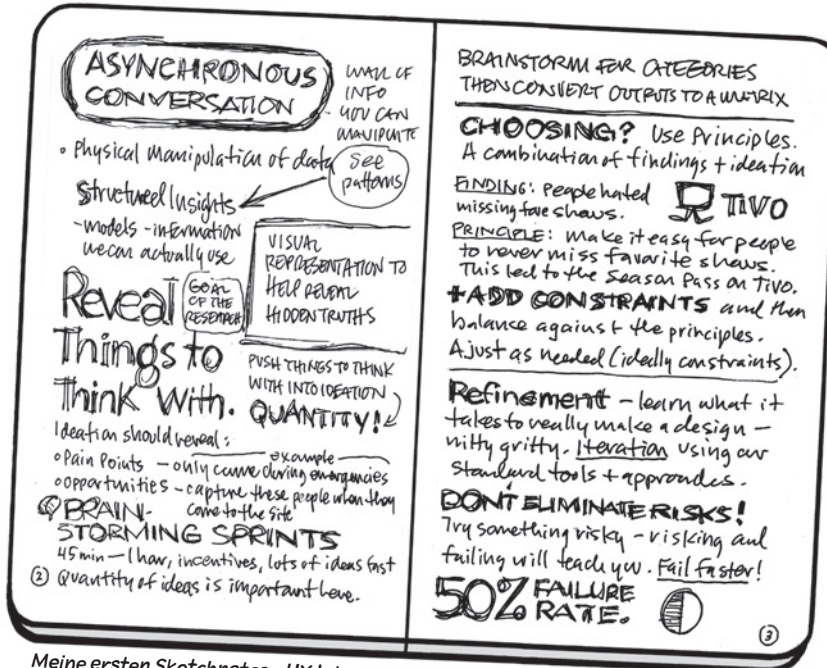 ASYNCHRONOUS
CONVERSATION
WALL OF
INFO
YOU CAN
MANIPULATE
• Physical Manipulation of data
See
patterns
Structured Insights
- models - information
we can actually use
VISUAL
REPRESENTATION TO
HELP REVEAL
HIDDEN TRUTHS
Reveal
GOAL
OF THE
RESEARCH
Things to
Think With.
PUSH THINGS TO THINK
WITH INTO IDEATION
QUANTITY!
Ideation should reveal:
example
• Pain Points - only came during emergencies
• Opportunities - capture these people when they
come to the site
BRAIN-
STORMING SPRINTS
45 min - 1 hour, incentives, lots of ideas fast
Quantity of ideas is important here.
2
BRAINSTORM FOR CATEGORIES
THEN CONVERT OUTPUTS TO A MATRIX
CHOOSING? Use Principles.
A combination of findings + ideation
FINDING: People hated
missing fave shows.
TIVO
PRINCIPLE: Make it easy for people
to never miss favorite shows.
This led to the Season Pass on Tivo.
+ADD CONSTRAINTS and then
balance against the principles.
Ajust as needed (ideally constraints).
Refinement - learn what it
takes to really make a design -
nitty gritty. Iteration using our
standard tools + approaches.
DON'T ELIMINATE RISKS!
Try something risky - risking and
failing will teach you. Fail faster!
50% FAILURE
RATE.
3
Meine ersten Sketchnotes